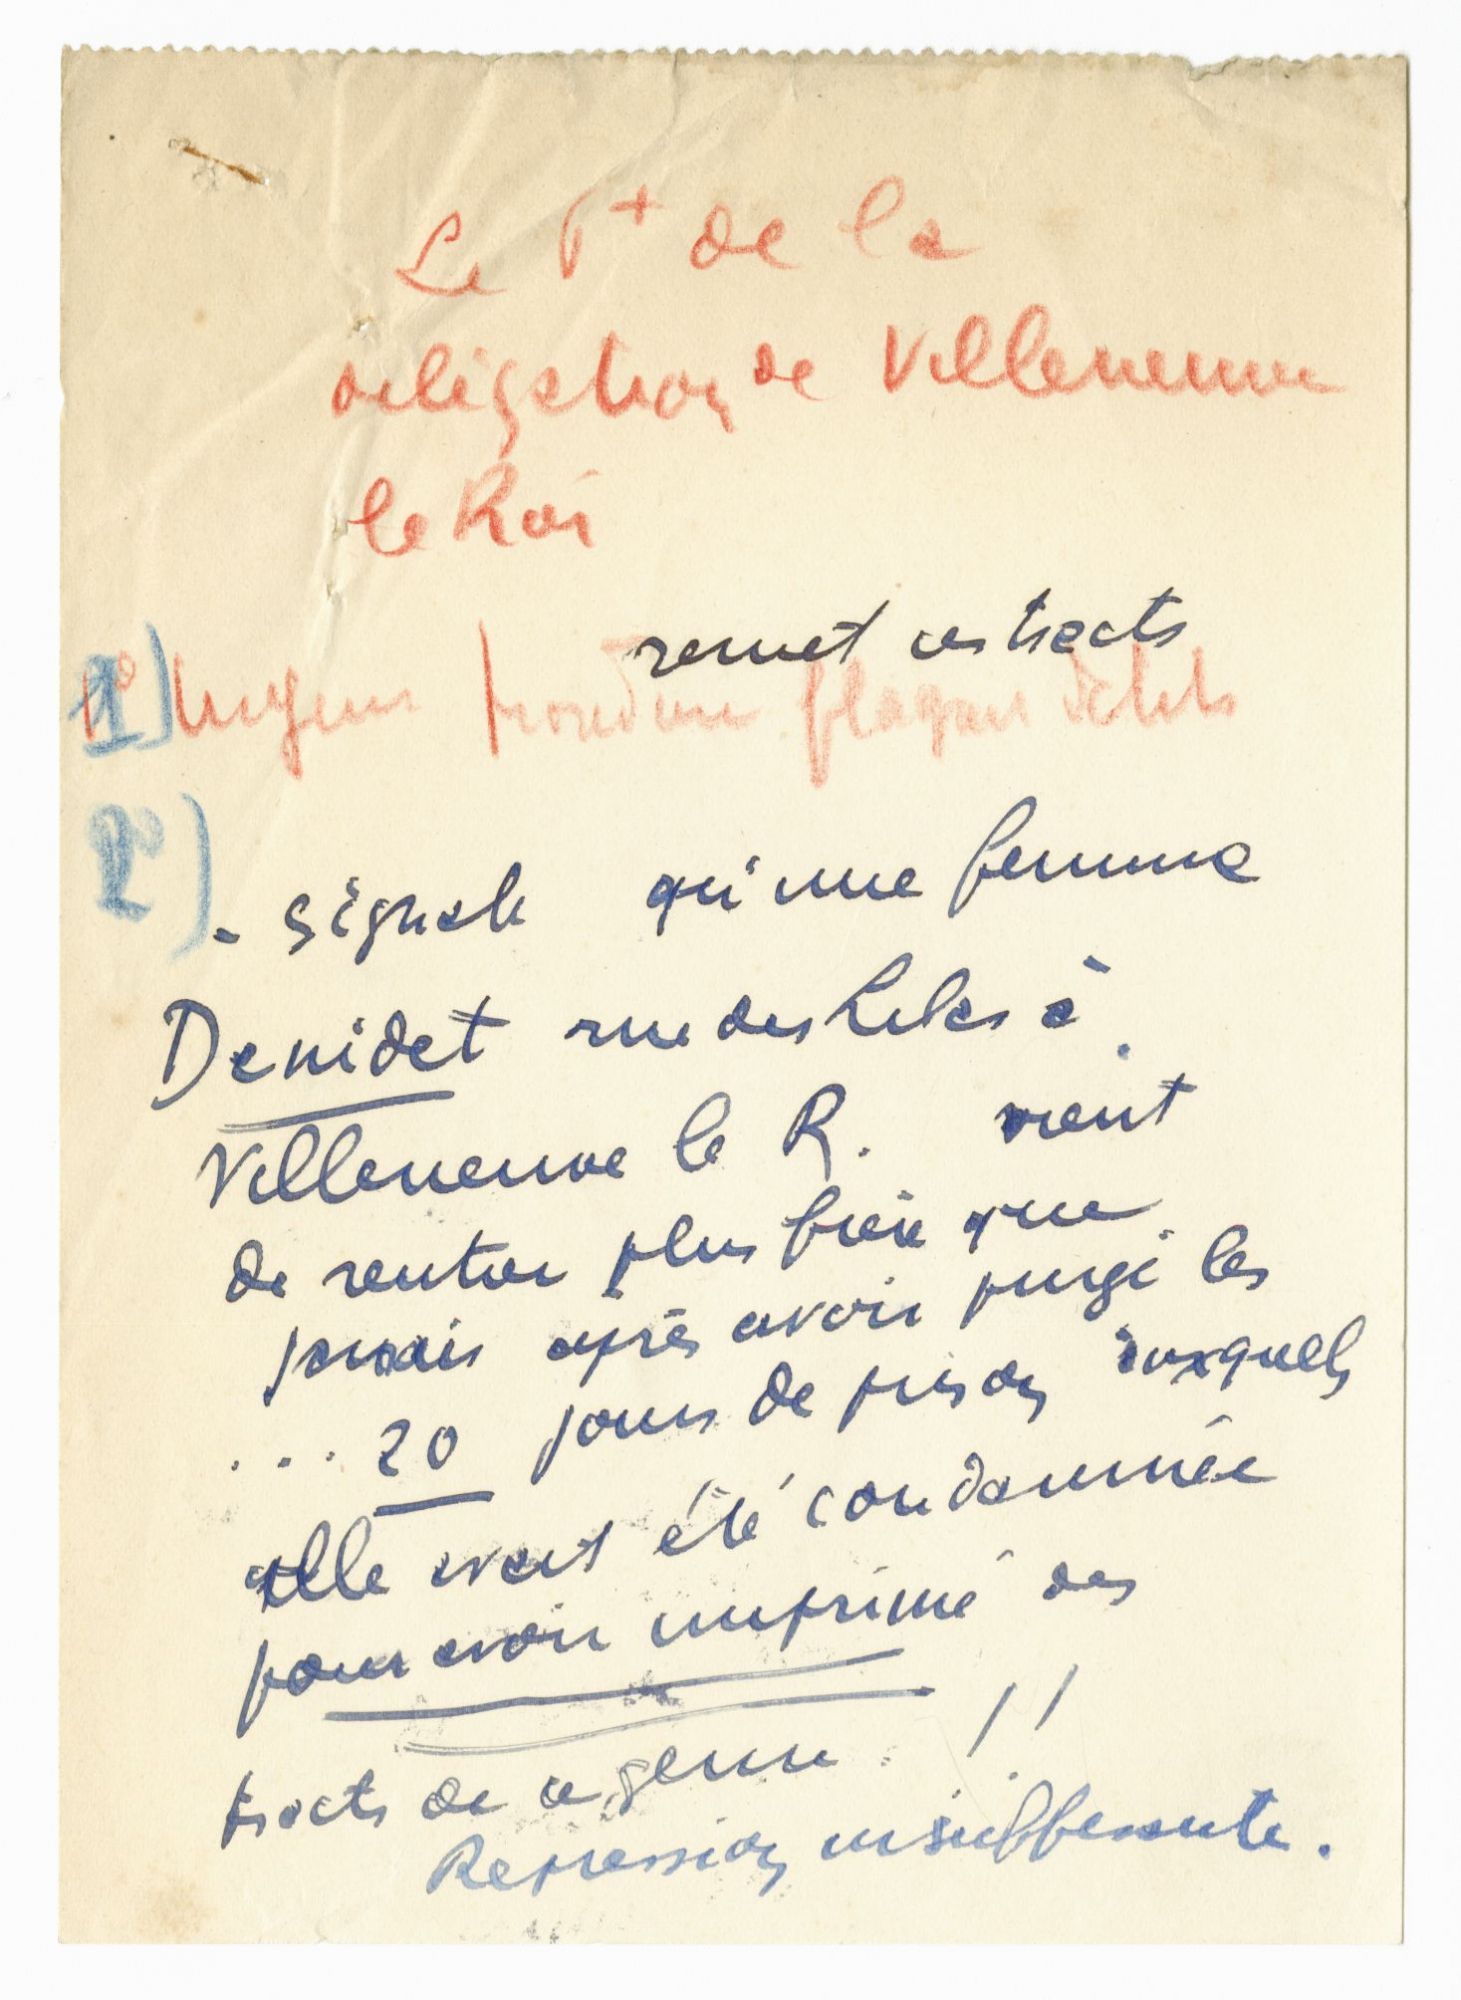 Le Pt de la
délégation de Villeneuve
le Roi
remet ces tracts
1°) Urgence procédure flagrant délit
2°)
- signale qu'une femme
Denidet rue des Lilas à
Villeneuve le R. vient
de rentrer plus fière que
jamais après avoir purgé les
... 20 jours de prison auxquels
elle avait été condamnée
pour avoir imprimé des
tracts de ce genre. !!
Repression insuffisante.